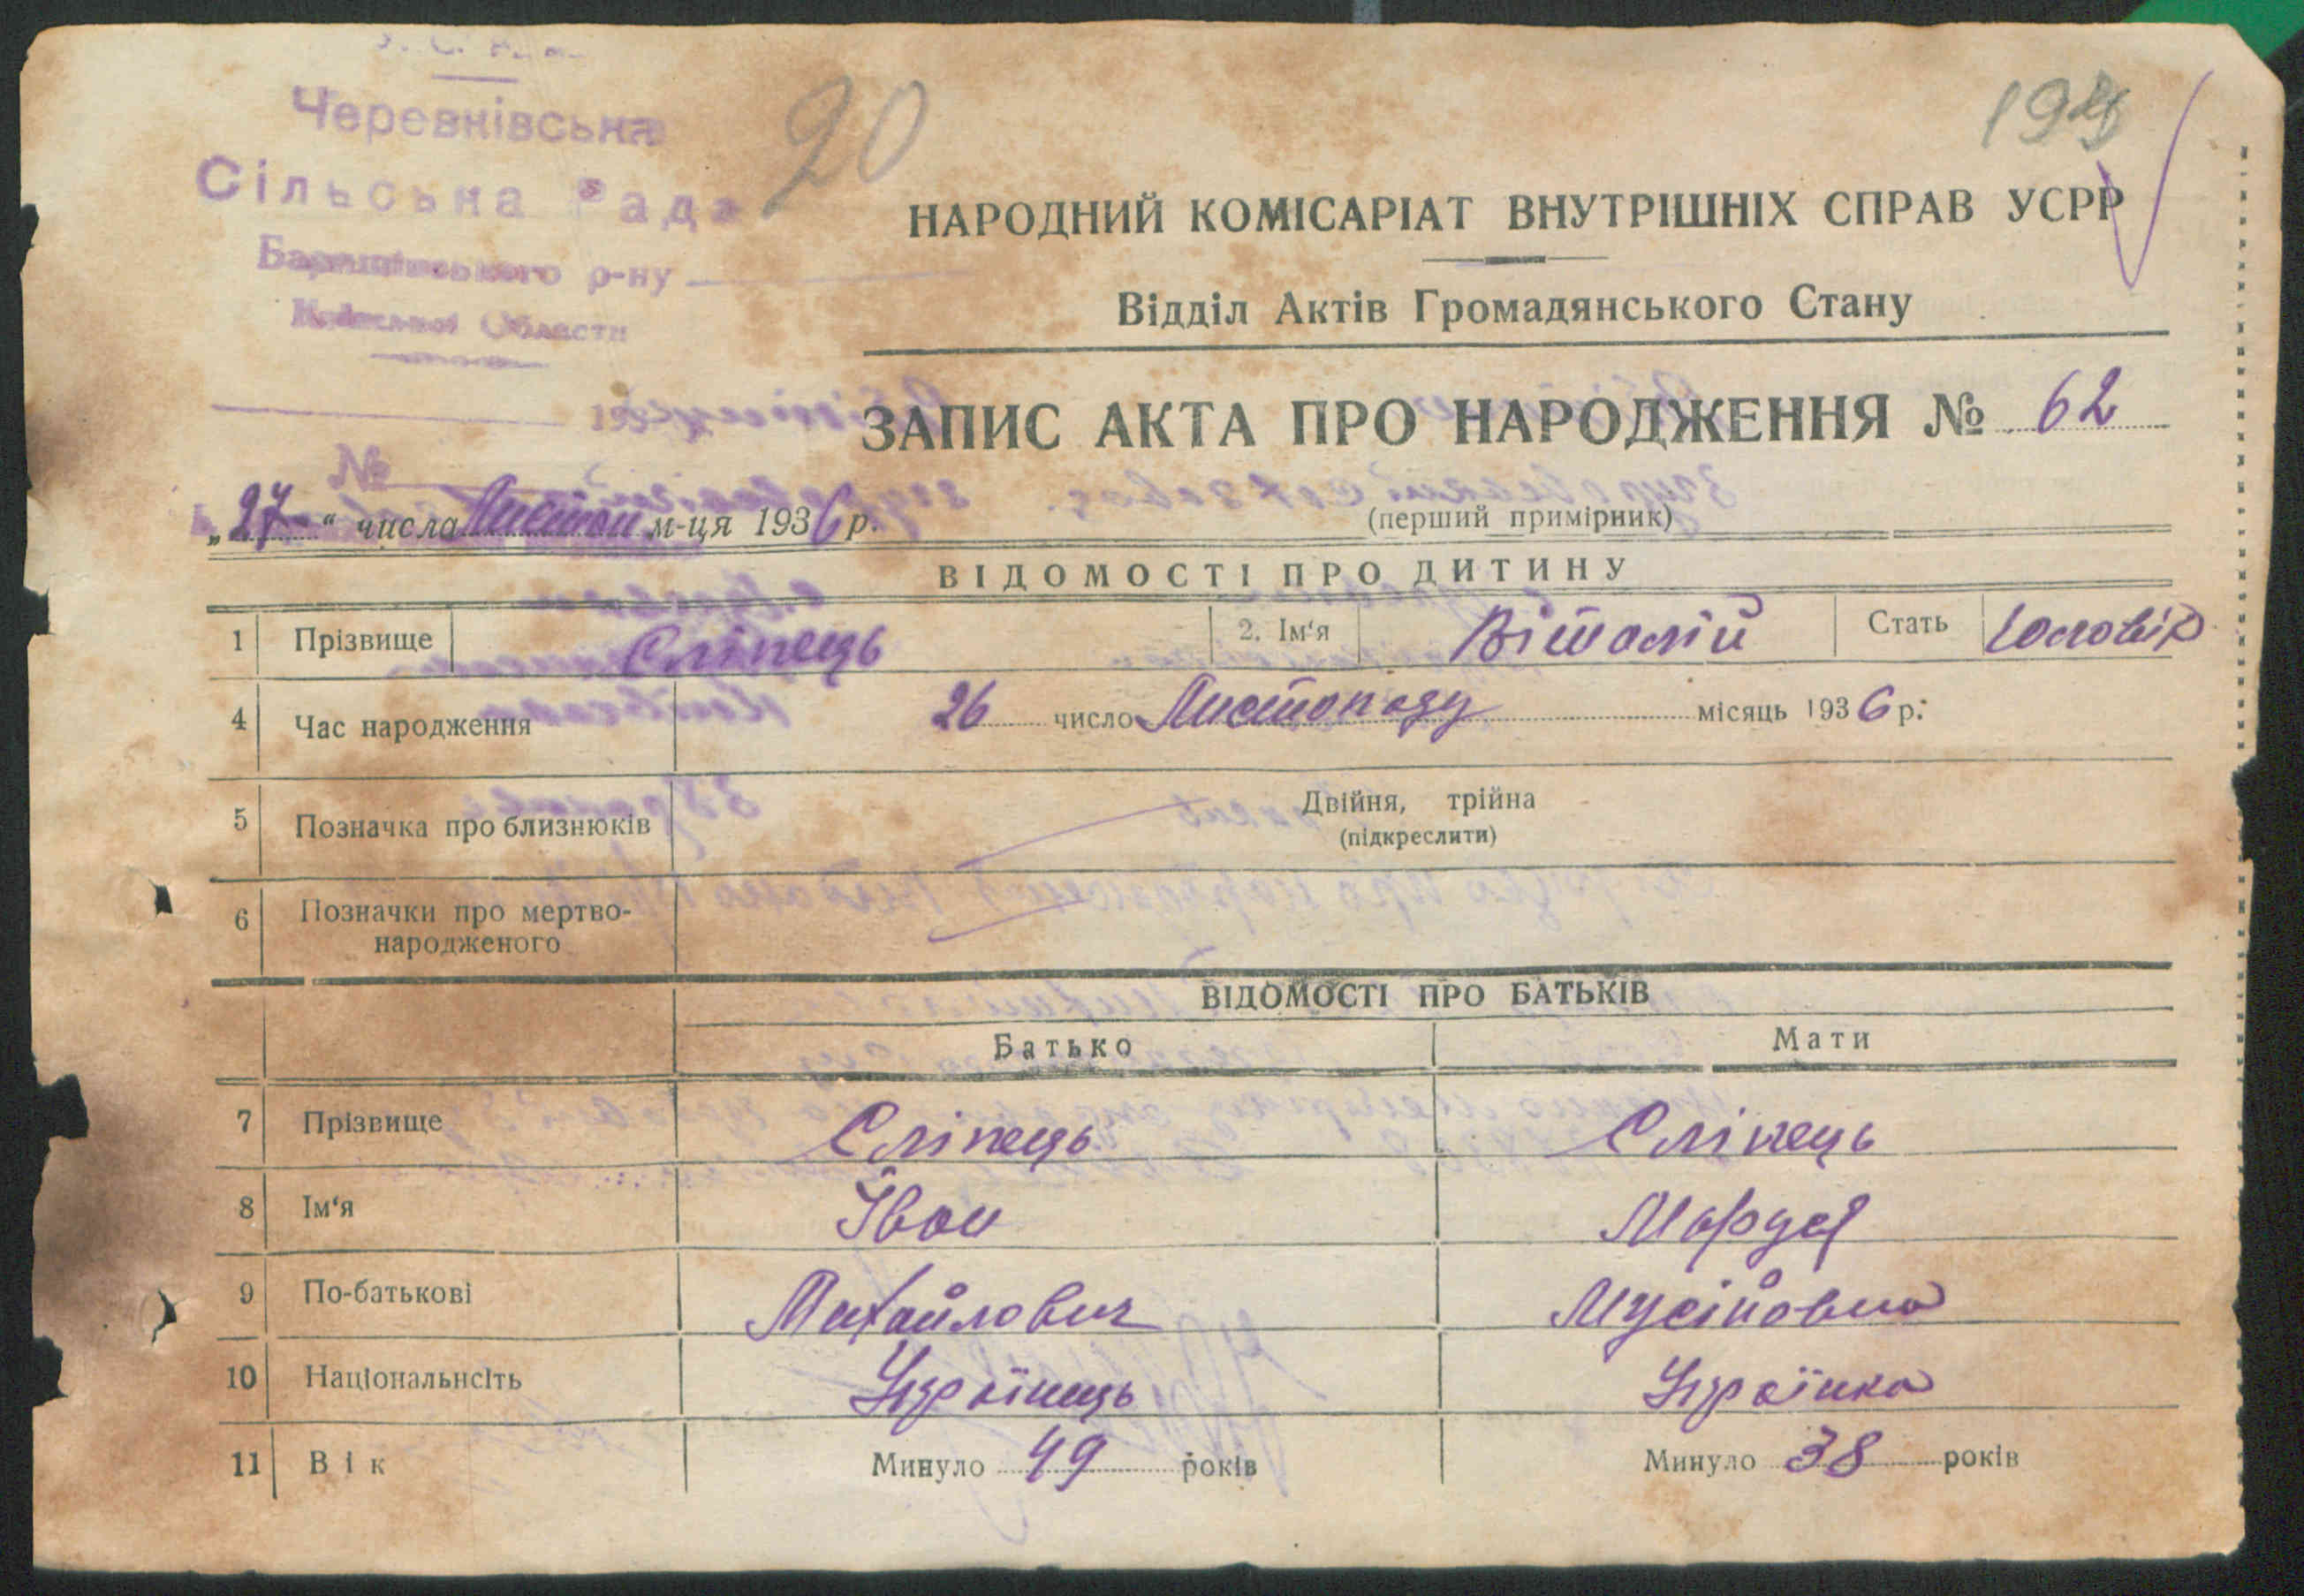 Черевківська
20
Сільська Рада
Баришівського р-ну
Київської Области
НАРОДНИЙ КОМІСАРІАТ ВНУТРІШНІХ СПРАВ УСРР
Відділ Актів Громадянського Стану
193
ЗАПИС АКТА ПРО НАРОДЖЕННЯ № 62
№
„27“ числа Листоп м-ця 1936 р.
(перший примірник)
ВІДОМОСТІ ПРО ДИТИНУ
1 Прізвище Сліпець 2. Ім‘я Віталій Стать Чоловік
4 Час народження 26 число Листопаду місяць 1936 р.
5 Позначка про близнюків Двійня, трійна
(підкреслити)
6 Позначки про мертво-
народженого
ВІДОМОСТІ ПРО БАТЬКІВ
Батько Мати
7 Прізвище Сліпець Сліпець
8 Ім‘я Іван
9 По-батькові Михайлович Мусіївна
10 Національнсіть Українець Українка
11 Вік Минуло 49 років Минуло 38 років